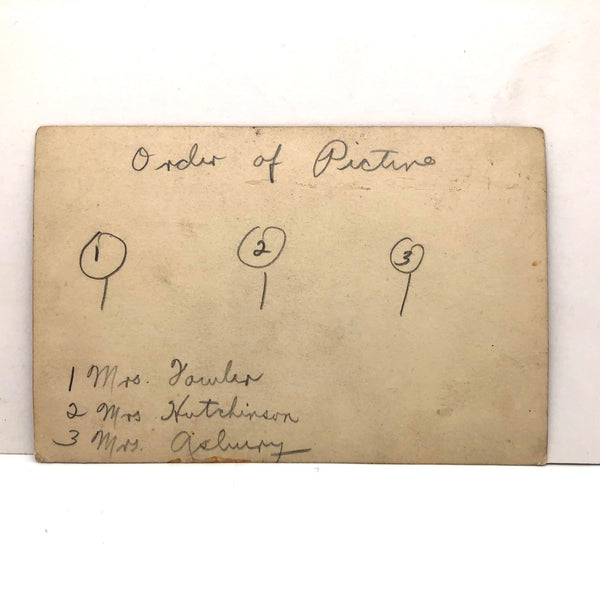 Order of Picture
1 2 3
1 Mrs. Fowler
2 Mrs Hutchinson
3 Mrs. Asbury